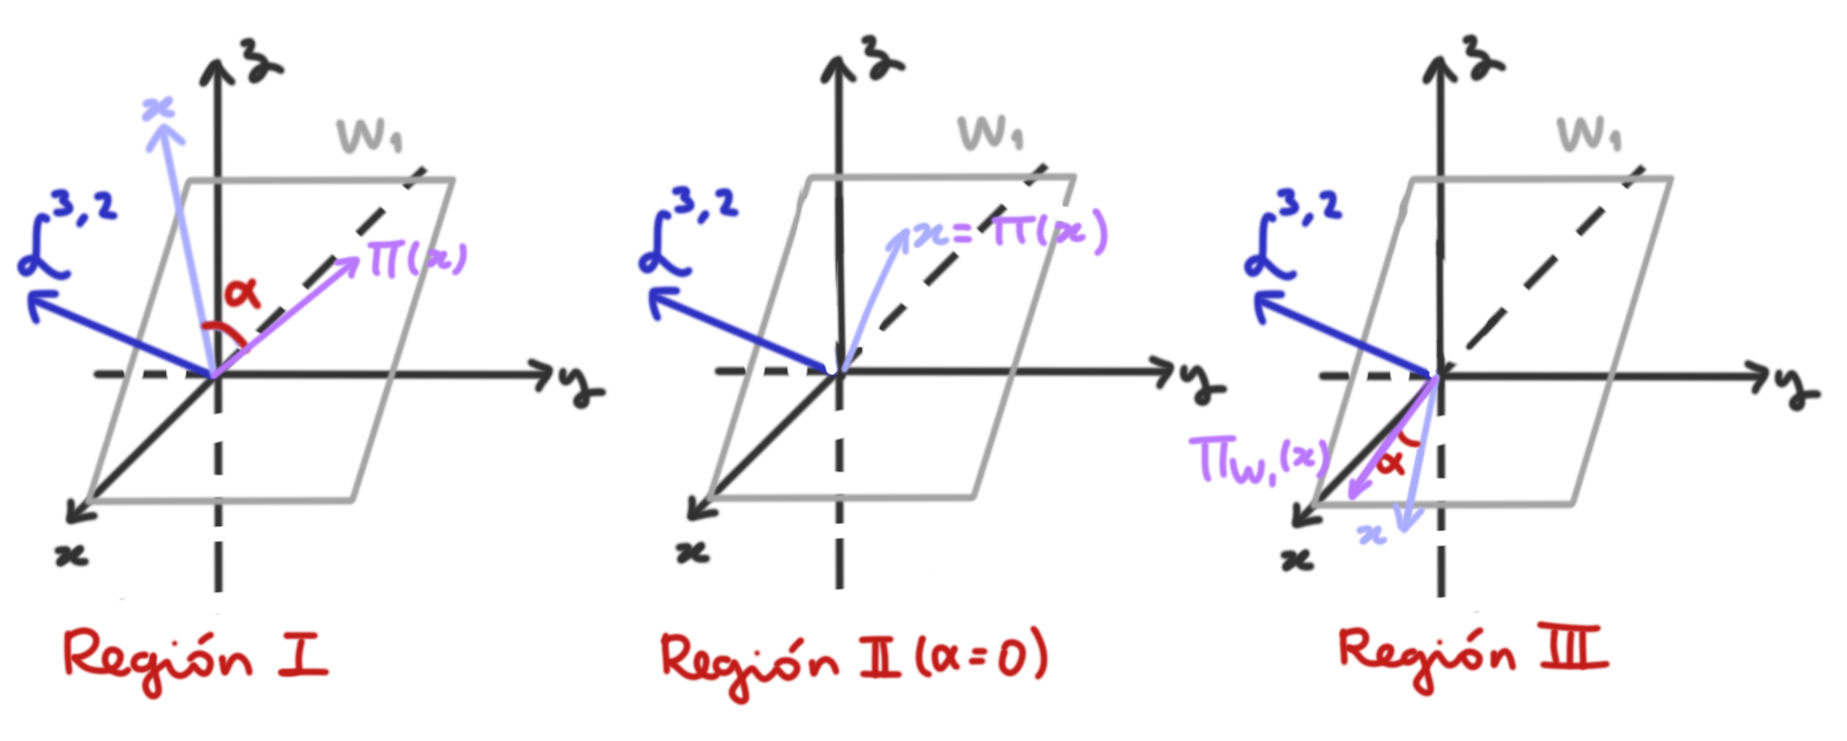 z
x
W₁
ℒ³,²
π(x)
α
y
x
Región I
z
W₁
ℒ³,²
x = π(x)
y
x
Región II (α = 0)
z
W₁
ℒ³,²
y
π_W₁(x)
α
x
x
Región III